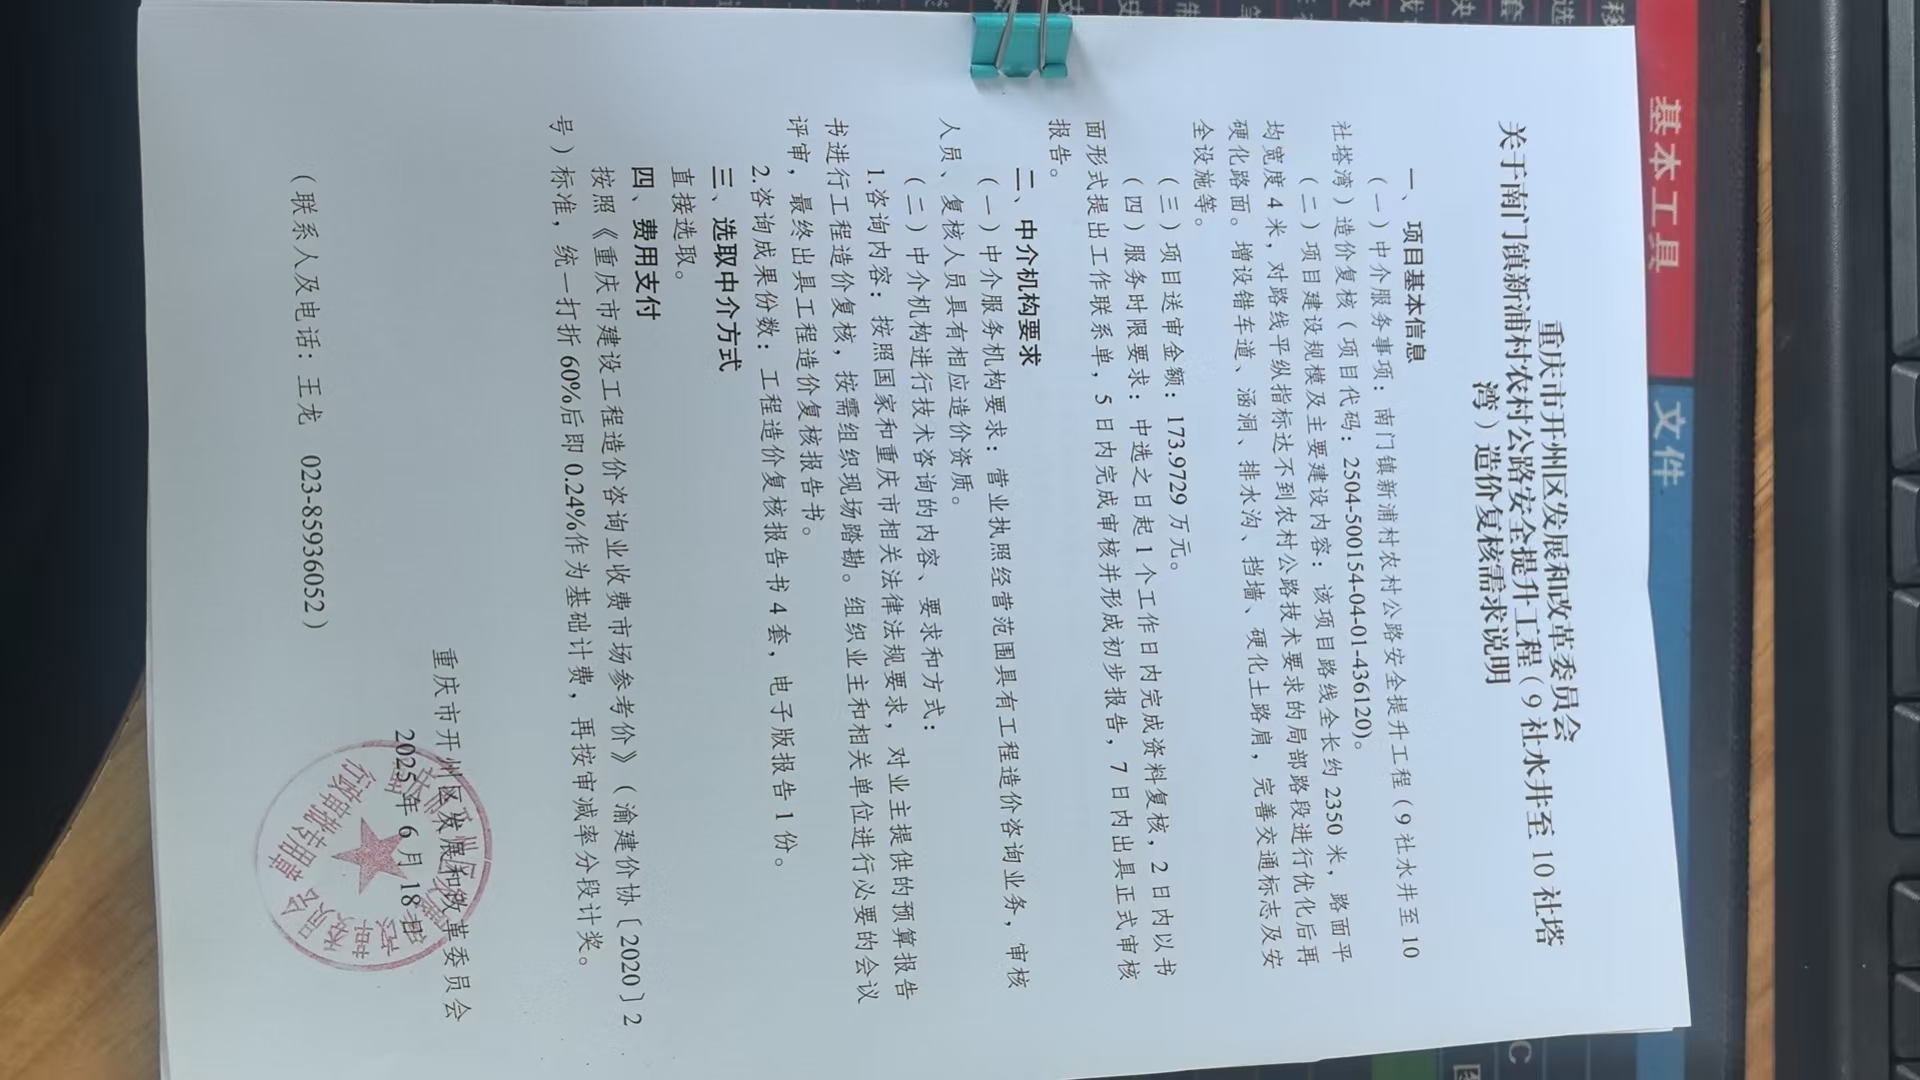 重庆市开州区发展和改革委员会
关于南门镇新浦村农村公路安全提升工程（9 社水井至 10 社塔
湾）造价复核需求说明
一、项目基本信息
（一）中介服务事项：南门镇新浦村农村公路安全提升工程（9 社水井至 10
社塔湾）造价复核（项目代码：2504-500154-04-01-436120)。
（二）项目建设规模及主要建设内容：该项目路线全长约 2350 米，路面平
均宽度 4 米，对路线平纵指标达不到农村公路技术要求的局部路段进行优化后再
硬化路面。增设错车道、涵洞、排水沟、挡墙、硬化土路肩，完善交通标志及安
全设施等。
（三）项目送审金额：173.9729 万元。
（四）服务时限要求：中选之日起 1 个工作日内完成资料复核，2 日内以书
面形式提出工作联系单，5 日内完成审核并形成初步报告，7 日内出具正式审核
报告。
二、中介机构要求
（一）中介服务机构要求：营业执照经营范围具有工程造价咨询业务，审核
人员、复核人员具有相应造价资质。
（二）中介机构进行技术咨询的内容、要求和方式：
1.咨询内容：按照国家和重庆市相关法律法规要求，对业主提供的预算报告
书进行工程造价复核，按需组织现场踏勘。组织业主和相关单位进行必要的会议
评审，最终出具工程造价复核报告书。
2.咨询成果份数：工程造价复核报告书 4 套，电子版报告 1 份。
三、选取中介方式
直接选取。
四、费用支付
按照《重庆市建设工程造价咨询业收费市场参考价》（渝建价协〔2020〕2
号）标准，统一打折 60%后即 0.24%作为基础计费，再按审减率分段计奖。
重庆市开州区发展和改革委员会
2025 年 6 月 18 日
（联系人及电话：王龙 023-85936052）
基本工具
文件